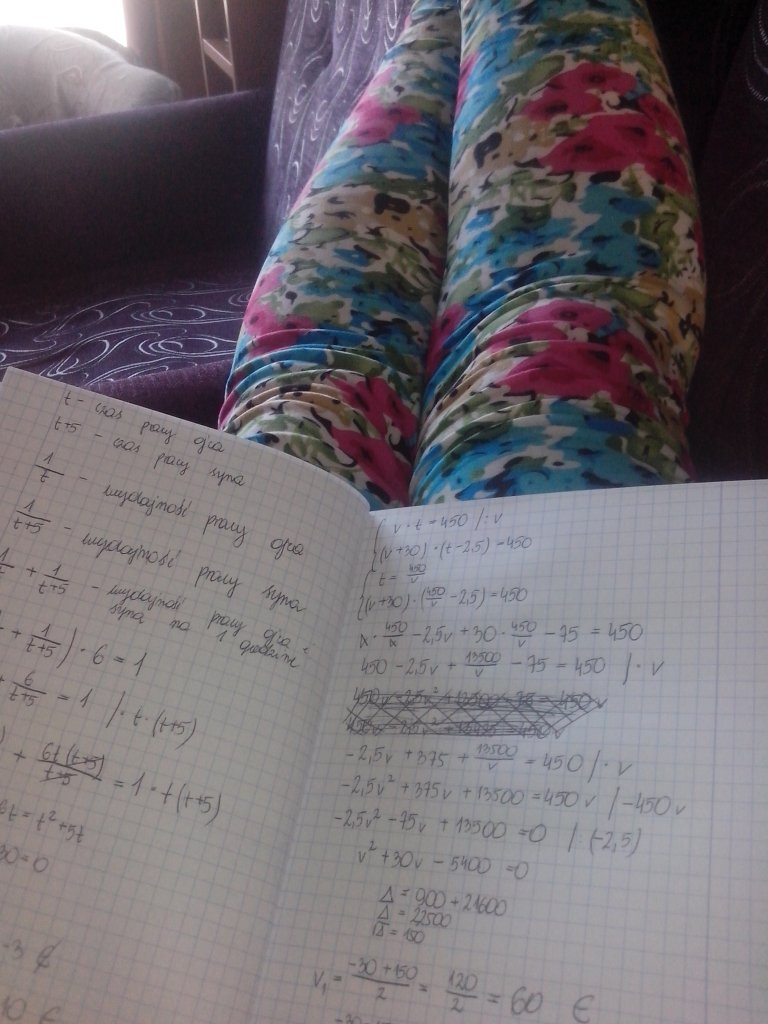 t - czas pracy ojca
t+5 - czas pracy syna
1/t - wydajność pracy ojca
1/(t+5) - wydajność pracy syna
1/t + 1/(t+5) - wydajność pracy ojca i
syna na 1 godzinę
+ 1/(t+5)) · 6 = 1
+ 6/(t+5) = 1 /· t · (t+5)
) + 6t(t+5)/(t+5) = 1 · t(t+5)
6t = t² + 5t
30 = 0
-3 ∉
10 ∈
{ v · t = 450 /: v
{ (v+30) · (t-2,5) = 450
{ t = 450/v
{ (v+30) · (450/v - 2,5) = 450
v · 450/v - 2,5v + 30 · 450/v - 75 = 450
450 - 2,5v + 13500/v - 75 = 450 /· v
-2,5v + 375 + 13500/v = 450 /· v
-2,5v² + 375v + 13500 = 450v /-450v
-2,5v² - 75v + 13500 = 0 /: (-2,5)
v² + 30v - 5400 = 0
Δ = 900 + 21600
Δ = 22500
√Δ = 150
v₁ = (-30 + 150)/2 = 120/2 = 60 ∈